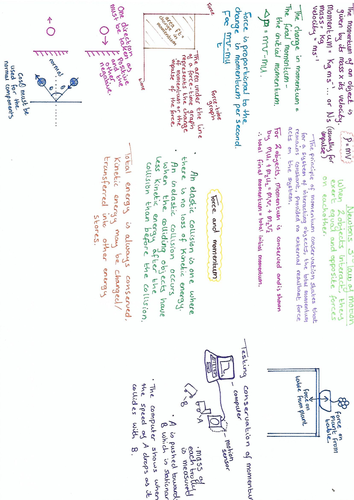 The momentum of an object is
given by its mass x its velocity.
Momentum = kg ms⁻¹ or Ns (usually for
mass = kg
impulse)
velocity = ms⁻¹
p=mv
The change in momentum =
The final momentum -
the initial momentum.
Δp = mv - mu.
Force is proportional to the
change in momentum per second.
F ∝ mv-mu
t
force-time
graph
force
time
The area under the line
of a force-time graph
represents the change
of momentum or the
impulse of the force.
One direction
must be positive
and the other
negative
normal
Cosθ must be
used as the
normal components
Newton's 3rd law of motion
When 2 objects interact, they
exert equal and opposite forces
on eachother.
The principle of momentum conservation states that
for a system of interacting objects, the total momentum
remains constant, provided no external resultant force
acts on the system.
For 2 objects, momentum is conserved and is shown
by
total final momentum = total initial momentum.
Force and momentum
An elastic collision is one where
there is no loss of kinetic energy.
An inelastic collision occurs
when the colliding objects have
less kinetic energy after the
collision than before the collision.
Total energy is always conserved.
Kinetic energy may be changed/
transferred into other energy
stores.
force on
plant from
table
force on
table from plant
Testing conservation of momentum
computer
motion
sensor
A
B
mass of
each trolley
is measured
A is pushed towards
B which is stationary
The computer shows when
the speed of A drops as it
collides with B.